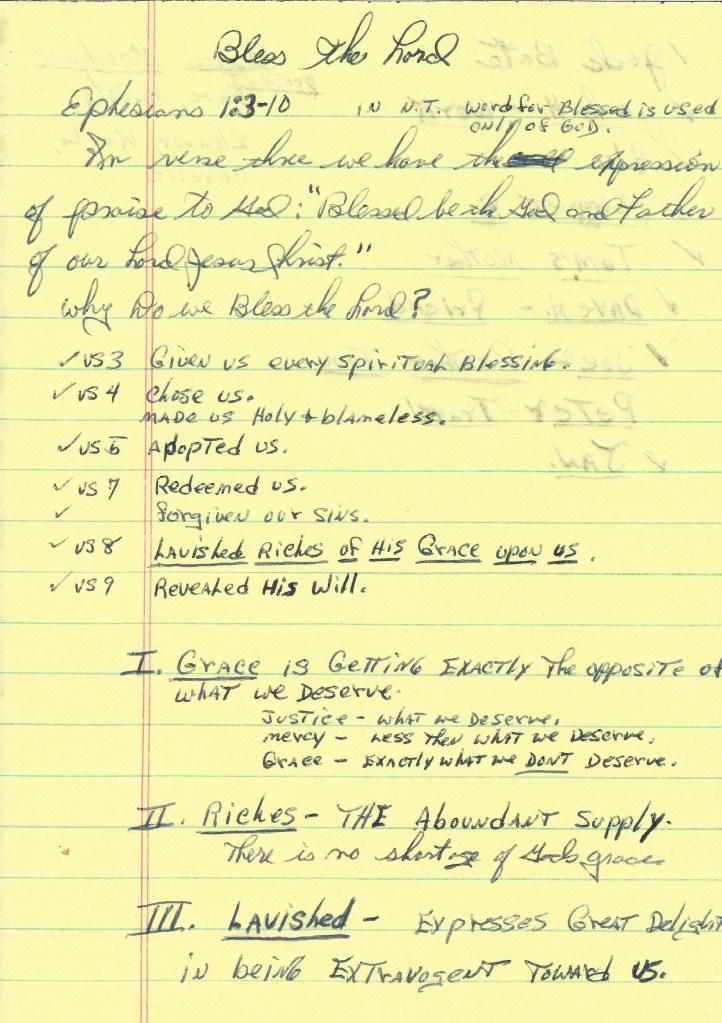 Bless the Lord
Ephesians 1:3-10 IN N.T. word for Blessed is used
only of GOD.
In verse three we have the expression
of praise to God: "Blessed be the God and Father
of our Lord Jesus Christ."
Why Do we Bless the Lord?
✓ vs 3 Given us every spiritual Blessing.
✓ vs 4 Chose us.
made us Holy + blameless.
✓ vs 5 Adopted us.
✓ vs 7 Redeemed us.
✓ forgiven our sins.
✓ vs 8 Lavished Riches of His Grace upon us.
✓ vs 9 Revealed His Will.
I. Grace is Getting Exactly The opposite of
what we Deserve.
Justice - what we Deserve.
Mercy - Less Then what we Deserve.
Grace - Exactly what we DONT Deserve.
II. Riches - THE Aboundant Supply.
There is no shortage of Gods grace.
III. Lavished - Expresses Great Delight
in being Extravogent Toward us.